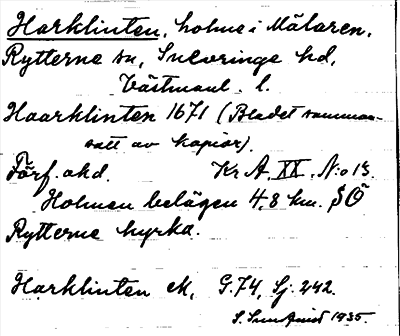 Harklinten, holme i Mälaren,
Rytterne sn, Snevringe hd,
Västmanl. l.
Haarklinten 1671 (Bladet samman-
satt av kopior).
Förf. okd. Kr. A. XX. N:o 13.
Holmen belägen 4,8 km. SÖ
Rytterne kyrka.
Harklinten ek, G.74, Sj. 242.
1935